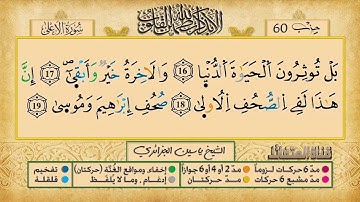 سُورَةُ الأَعْلَى
أَلَا بِذِكْرِ اللَّهِ تَطْمَئِنُّ الْقُلُوبُ
حزب 60
بَلْ تُوثِرُونَ الْحَيَوٰةَ الدُّنْيَا 16 وَالَاخِرَةُ خَيْرٌ وَأَبْقَىٰٓ 17 إِنَّ
هَٰذَا لَفِي الصُّحُفِ الُاولَىٰ 18 صُحُفِ إِبْرَٰهِيمَ وَمُوسَىٰ 19
الشيخ ياسين الجزائري
مدّ 6 حركات لزوماً مدّ 2 أو 4 أو 6 جوازاً إخفاء، ومواقع الغُنَّة (حركتان) تفخيم
مدّ مشبع 6 حركات مدّ حركتان إدغام، وما لا يُلفَظ قلقلة